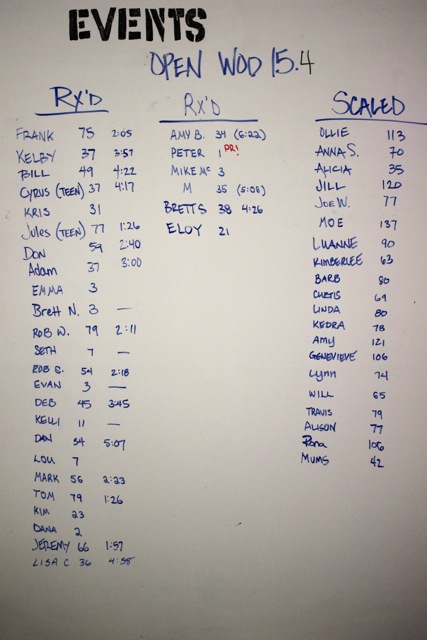 EVENTS
OPEN WOD 15.4
RX'D
FRANK 75 2:05
KELBY 37 3:57
BILL 49 4:22
CYRUS (TEEN) 37 4:17
KRIS 31
JULES (TEEN) 77 1:26
DON 54 2:40
Adam 37 3:00
EMMA 3
Brett N. 3 —
ROB W. 79 2:11
SETH 7 —
ROB G. 54 2:18
EVAN 3 —
DEB 45 3:45
KELLI 11 —
DAN 34 5:07
LOU 7
MARK 56 2:23
TOM 79 1:26
KIM 23
DANA 2
JEREMY 66 1:57
LISA C 36 4:55
RX'D
AMY B. 34 (6:22)
PETER 1 PR!
MIKE Mc 3
M 35 (5:08)
BRETT S 38 4:26
ELOY 21
SCALED
OLLIE 113
ANNA S. 70
ALICIA 35
JILL 120
JOE W. 77
MOE 137
LUANNE 90
KIMBERLEE 63
BARB 80
CURTIS 69
LINDA 80
KEDRA 78
AMY 121
GENEVIEVE 106
Lynn 74
WILL 65
TRAVIS 79
ALISON 77
Rona 106
MUMS 42